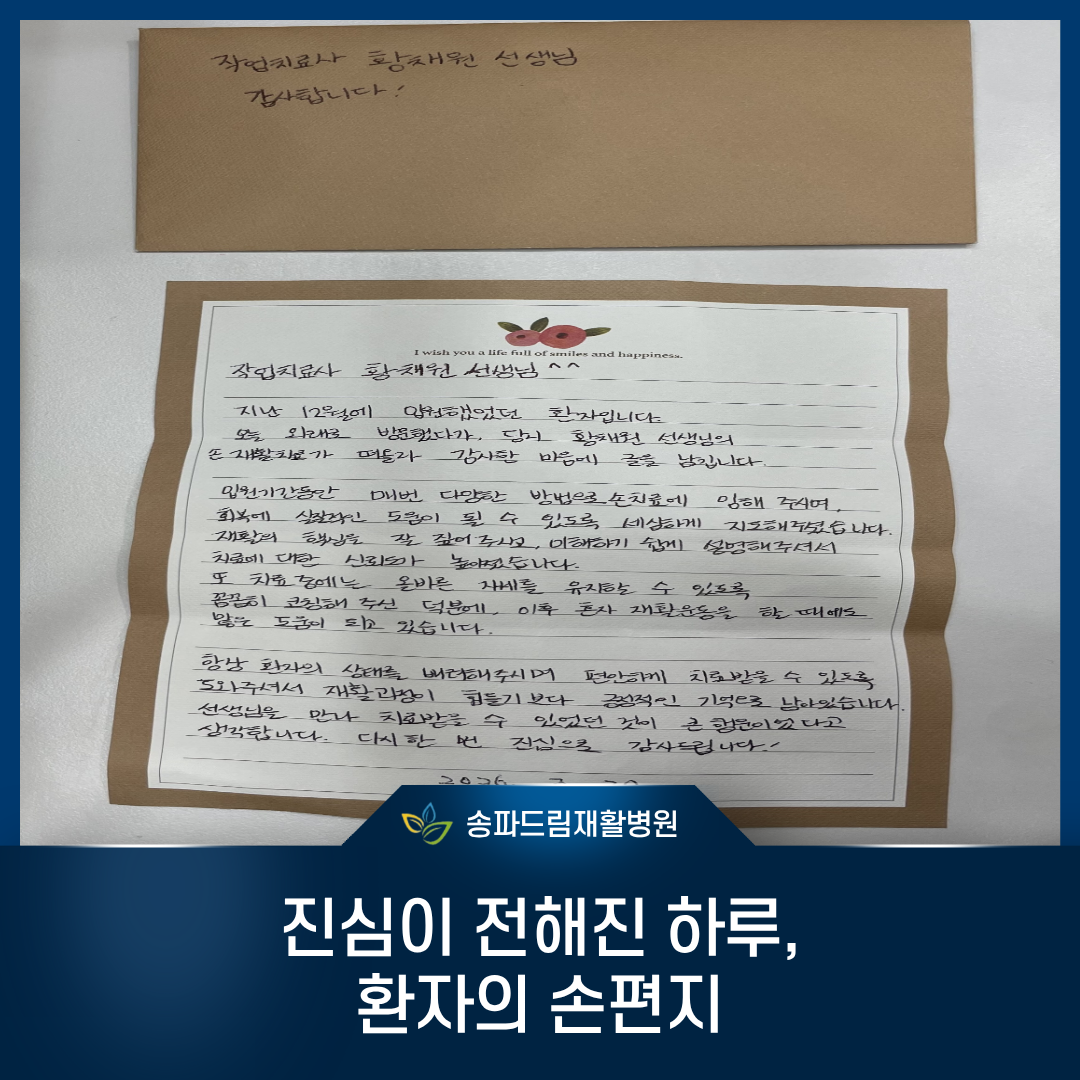 작업치료사 황채원 선생님
감사합니다!
I wish you a life full of smiles and happiness.
작업치료사 황채원 선생님 ^^
지난 12월에 입원했었던 환자입니다.
오늘 외래로 방문했다가, 답시 황채원 선생님의
손 재활치료가 떠올라 감사한 마음에 글을 남깁니다.
입원기간동안 매번 다양한 방법으로 손치료에 임해 주시며,
회복에 실질적인 도움이 될 수 있도록 세심하게 지도해주셨습니다.
재활의 핵심을 잘 짚어주시고, 이해하기 쉽게 설명해주셔서
치료에 대한 신뢰도가 높아졌습니다.
또 치료 중에는 올바른 자세를 유지할 수 있도록
꼼꼼히 코칭해 주신 덕분에, 이후 혼자 재활운동을 할 때에도
많은 도움이 되고 있습니다.
항상 환자의 상태를 배려해주시며 편안하게 치료받을 수 있도록
도와주셔서 재활과정이 힘들기 보다 긍정적인 기억으로 남아있습니다.
선생님을 만나 치료받을 수 있었던 것이 큰 행운이었다고
생각합니다. 다시 한 번 진심으로 감사드립니다!
송파드림재활병원
진심이 전해진 하루,
환자의 손편지